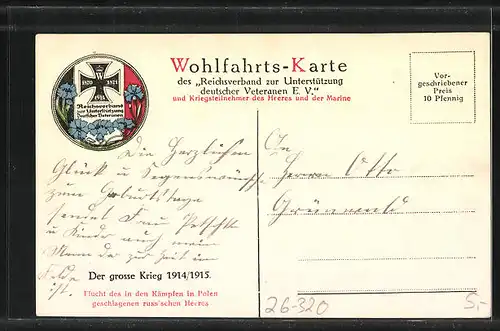 Wohlfahrts-Karte
des „Reichsverband zur Unterstützung
deutscher Veteranen E. V."
und Kriegsteilnehmer des Heeres und der Marine
Vor-
geschriebener
Preis
10 Pfennig
1870 1871
Reichsverband
zur Unterstützung
Deutscher Veteranen
Die Herzlichen
Glück u Segenswünsche
zum Geburtstage
sendet Frau
u Kinder auch mein
Mann der zur Zeit im
Felde
ist.
An
Herrn Otto
Der grosse Krieg 1914/1915.
Flucht des in den Kämpfen in Polen
geschlagenen russ'schen Heeres
26-320
5,-